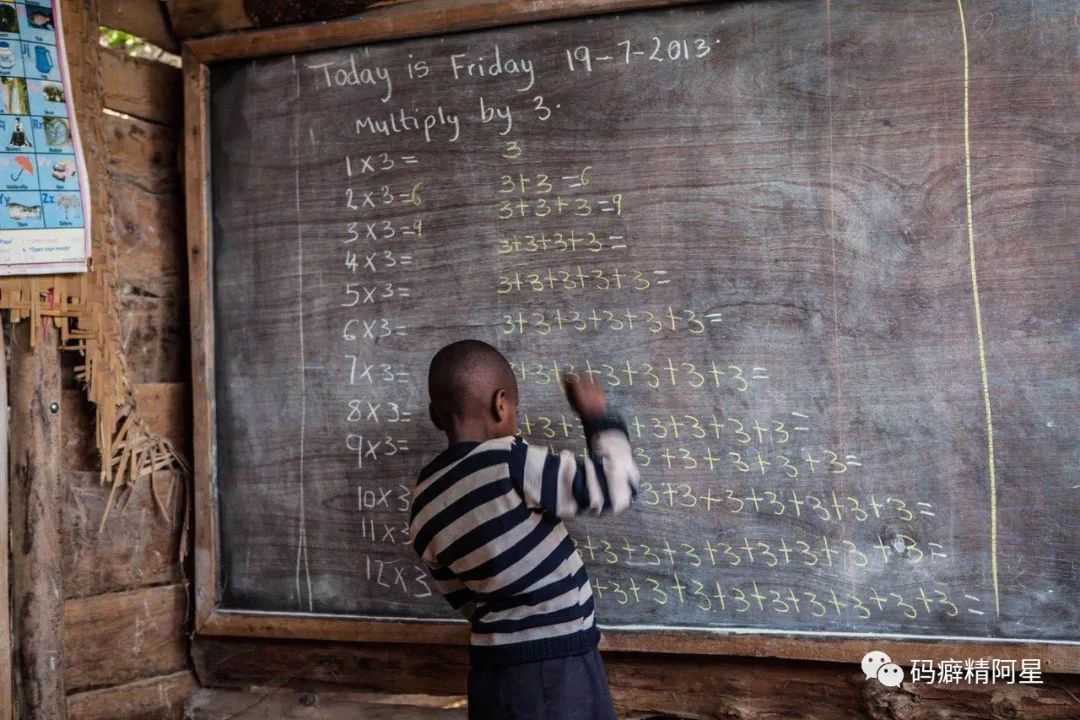 Today is Friday 19-7-2013.
Multiply by 3.
1x3= 3
2x3=6 3+3=6
3x3=9 3+3+3=9
4x3= 3+3+3+3=
5x3= 3+3+3+3+3=
6x3= 3+3+3+3+3+3=
7x3= 3+3+3+3+3+3+3=
8x3= 3+3 +3+3+3+3+3=
9x3= +3+3+3+3+3+3=
10x3 3+3+3+3+3+3+3=
11x3 +3+3+3+3+3+3+3+3+3=
12x3 +3+3+3+3+3+3+3+3+3+3=
Yy Zz
码癖精阿星